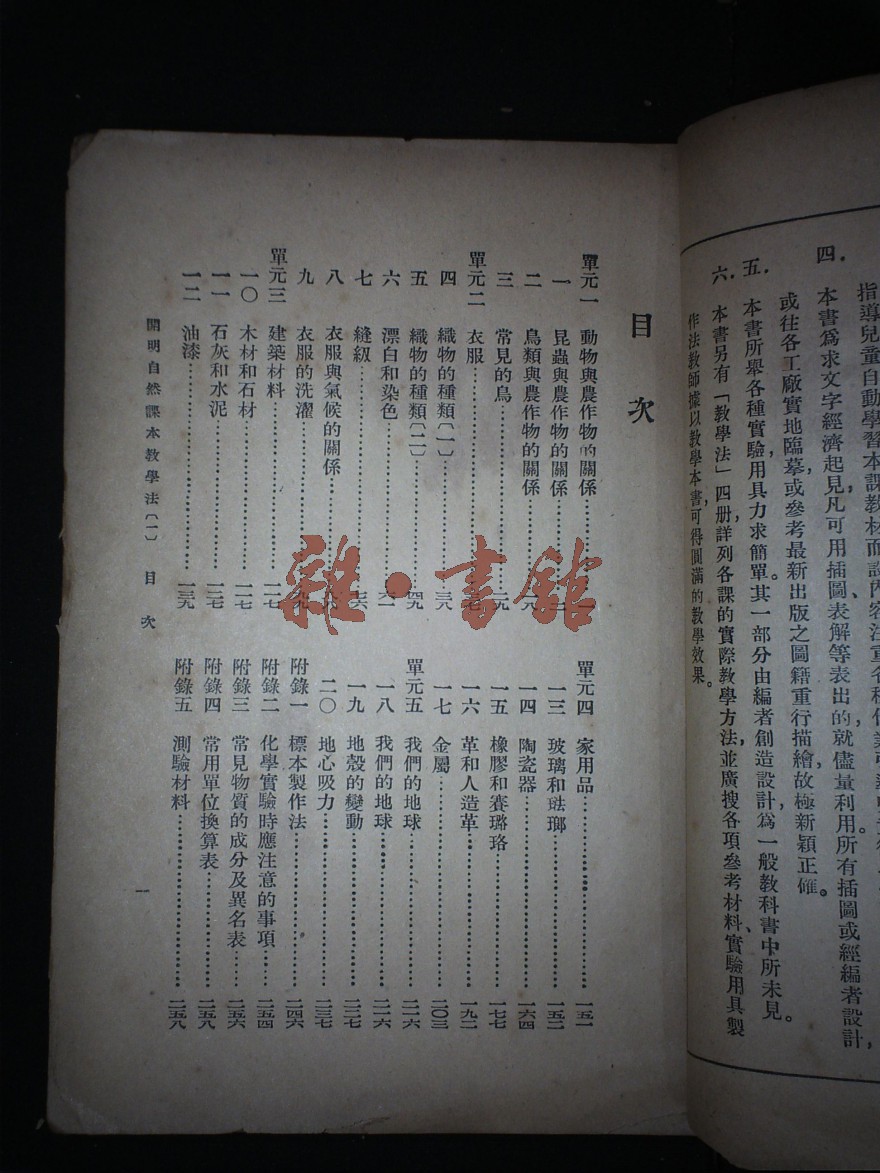 指導兒童自動學習本課教材而設內容注重各種
四．本書爲求文字經濟起見，凡可用插圖、表解等表出的，就儘量利用。所有插圖或經編者設計，
或往各工廠實地臨摹，或參考最新出版之圖籍重行描繪，故極新穎正確。
五．本書所舉各種實驗用具，力求簡單。其一部分由編者創造設計，爲一般教科書中所未見。
六．本書另有「教學法」四册，詳列各課的實際教學方法，並廣搜各項參考材料、實驗用具製
作法，教師據以教學本書，可得圓滿的教學效果。
目次
單元一 動物與農作物的關係……………一
一 昆蟲與農作物的關係……………
二 鳥類與農作物的關係……………
三 常見的鳥……………
單元二 衣服……………
四 織物的種類〔一〕……………三八
五 織物的種類〔二〕……………四九
六 漂白和染色……………六一
七 縫紉……………七六
八 衣服與氣候的關係……………
九 衣服的洗濯……………
單元三 建築材料……………一一七
一〇 木材和石材……………一一七
一一 石灰和水泥……………一二七
一二 油漆……………一三九
單元四 家用品……………一五一
一三 玻璃和琺瑯……………一五二
一四 陶瓷器……………一六四
一五 橡膠和賽璐珞……………一七七
一六 革和人造革……………一九二
一七 金屬……………二〇三
單元五 我們的地球……………二一六
一八 我們的地球……………二一六
一九 地殼的變動……………二二七
二〇 地心吸力……………二三七
附錄一 標本製作法……………二四六
附錄二 化學實驗時應注意的事項……………二五四
附錄三 常見物質的成分及異名表……………二五六
附錄四 常用單位換算表……………二五八
附錄五 測驗材料……………二五八
開明自然課本教學法〔一〕 目次
一
雜·書館